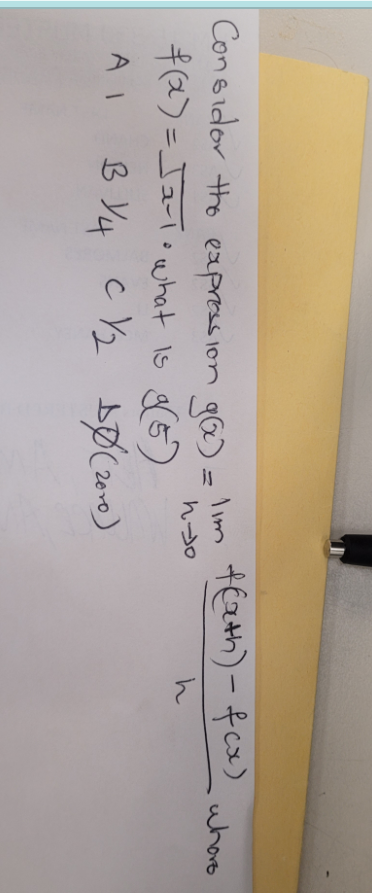 Consider the expression g(x) = lim h→0 f(x+h) - f(x) / h where
f(x) = √x-1 . what is g(5)
A 1 B 1/4 C 1/2 D Ø (zero)